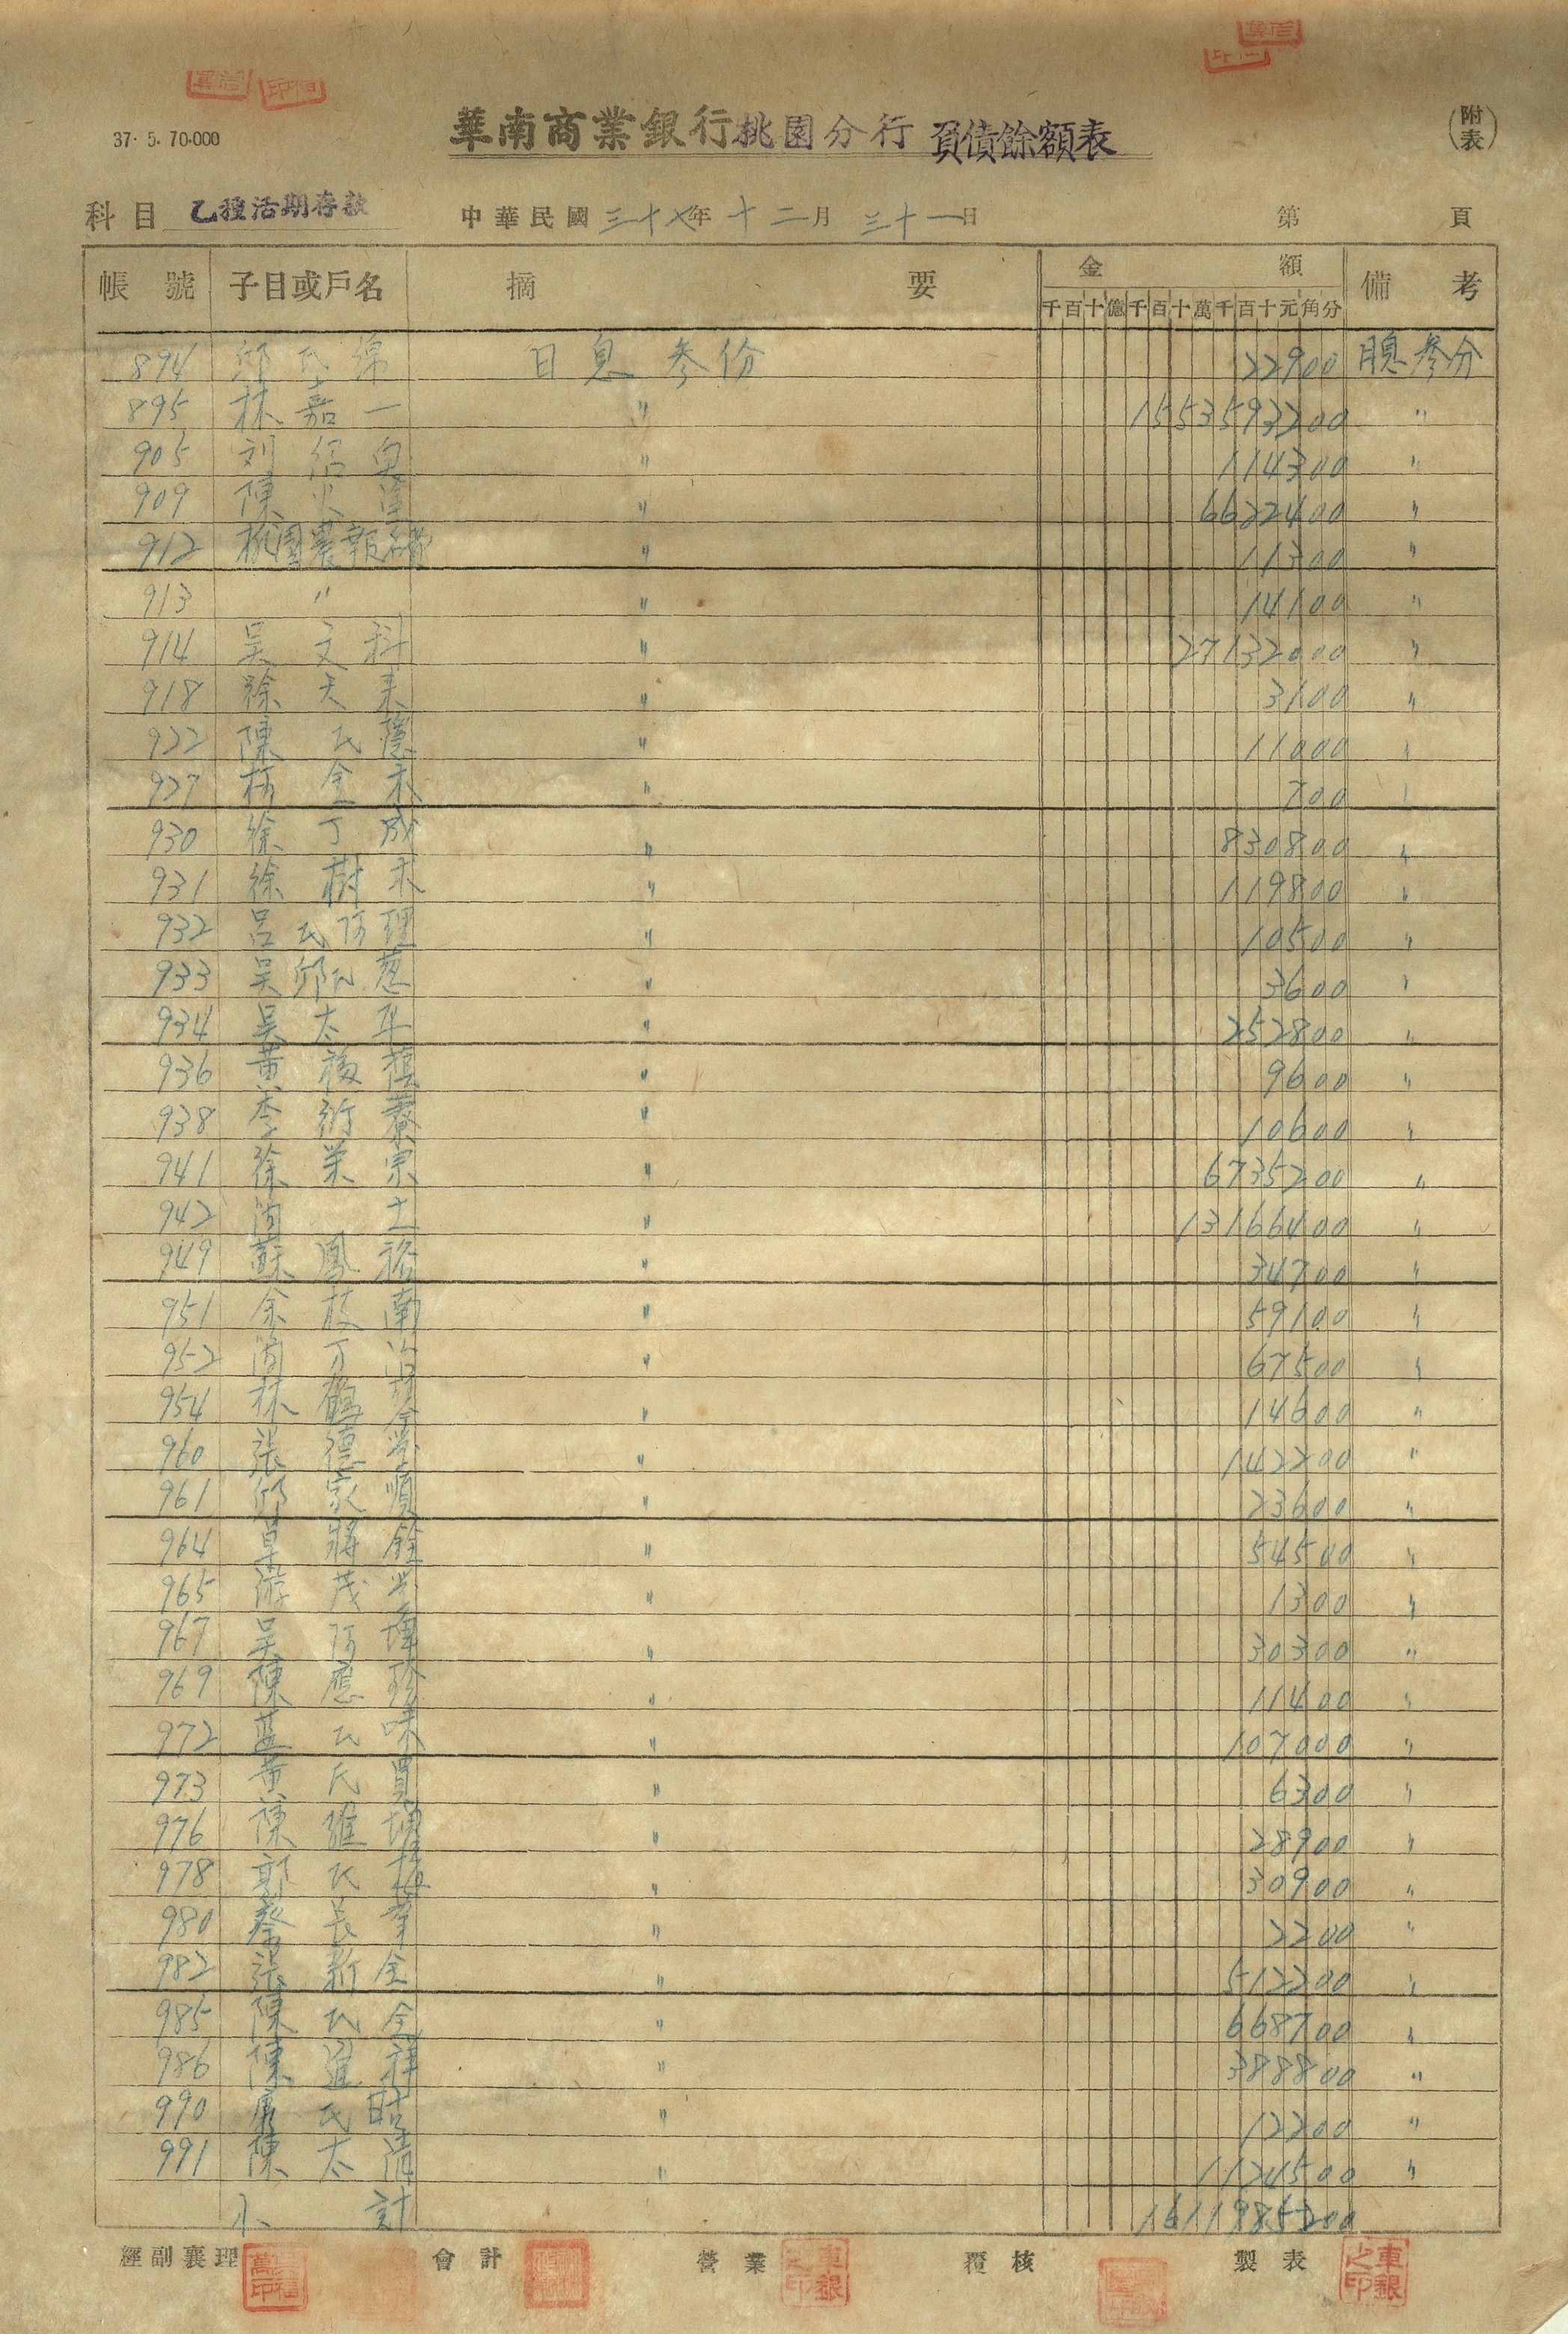 37. 5. 70.000
華南商業銀行桃園分行 負債餘額表
(附表)
科目 乙種活期存款 中華民國三十七年十二月三十一日 第 頁
帳號 子目或戶名 摘要 金額 備考
千百十億千百十萬千百十元角分
894 邱氏綿 日息參份 22900 日息參分
895 林嘉一 〃 1553593200 〃
905 刘紹 〃 114300 〃
909 陳火 〃 6622400 〃
912 桃園農報 〃 11300 〃
913 〃 〃 14100 〃
914 吳文科 〃 27132000 〃
918 徐天來 〃 3100 〃
922 陳氏隱 〃 11000 〃
927 柯金木 〃 700 〃
930 徐丁成 〃 830800 〃
931 徐樹木 〃 119800 〃
932 呂氏阿理 〃 10500 〃
933 吳邱氏蔥 〃 3600 〃
934 吳太平 〃 252800 〃
936 黃 〃 9600 〃
938 李衍 〃 10600 〃
941 徐荣宗 〃 6735200 〃
942 土 〃 13166400 〃
949 蘇鳳裕 〃 34700 〃
951 余枝南 〃 59100 〃
952 万 〃 67500 〃
954 林鶴 〃 14600 〃
960 張德 〃 142200 〃
961 邱家順 〃 23600 〃
964 將銓 〃 54500 〃
965 游茂 〃 1300 〃
967 吳阿 〃 30300 〃
969 陳應 〃 11400 〃
972 藍氏味 〃 107000 〃
973 黃氏買 〃 6300 〃
976 陳維 〃 28900 〃
978 郭氏 〃 30900 〃
980 蔡長 〃 2200 〃
982 張新全 〃 512200 〃
985 陳氏 〃 668700 〃
986 陳進祥 〃 388800 〃
990 氏 〃 12200 〃
991 陳太 〃 1124500 〃
小計 1611985200
經副襄理 會計 營業 覆核 製表